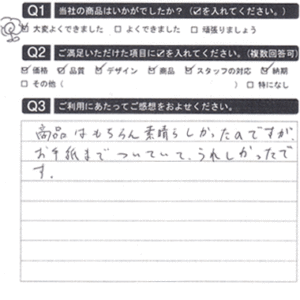 Q1 当社の商品はいかがでしたか？（☑を入れてください。）
☑ 大変よくできました □ よくできました □ 頑張りましょう
Q2 ご満足いただけた項目に☑を入れてください。（複数回答可）
☑ 価格 ☑ 品質 ☑ デザイン ☑ 商品 ☑ スタッフの対応 ☑ 納期
□ その他（ ） □ 特になし
Q3 ご利用にあたってご感想をおよせください。
商品はもちろん素晴らしかったのですが、
お手紙までついていて、うれしかったで
す。